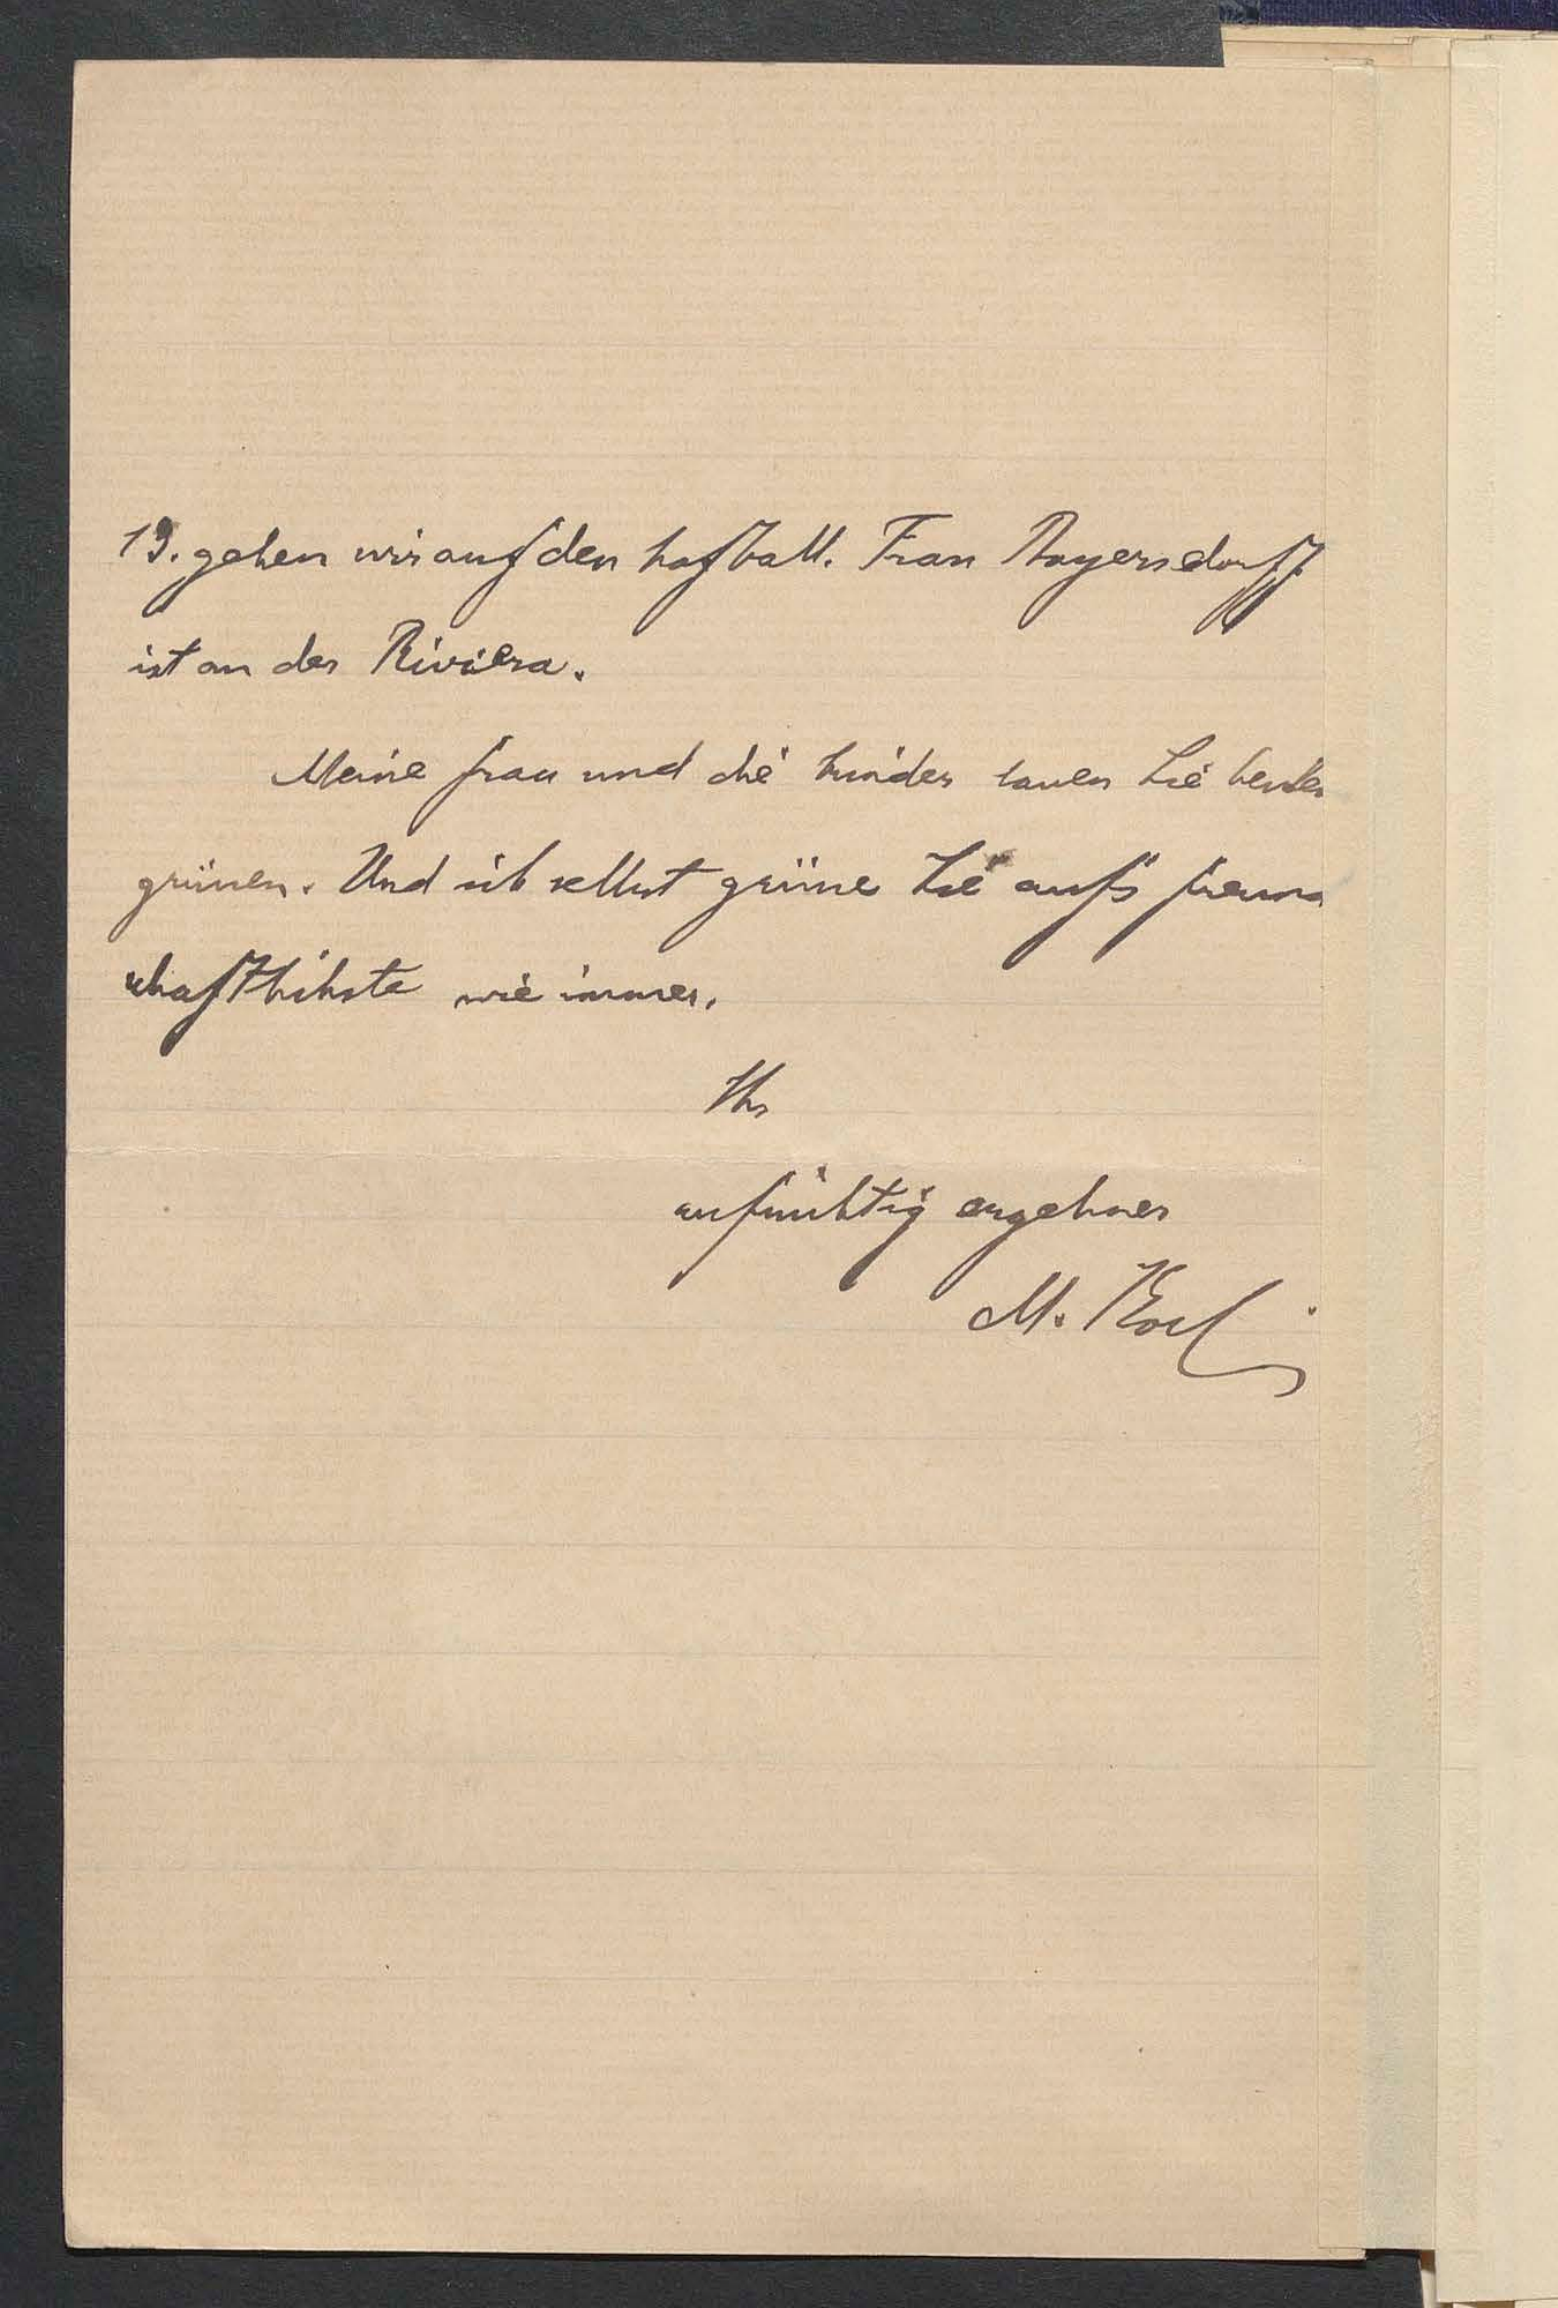 19. gehen wir auf den Hofball. Frau Mayersdorff
ist an der Riviera.
Meine Frau und die Kinder lassen Sie bestens
grüssen. Und ich selbst grüsse Sie aufs freund
schaftlichste wie immer.
Ihr
aufrichtig ergebener
M.